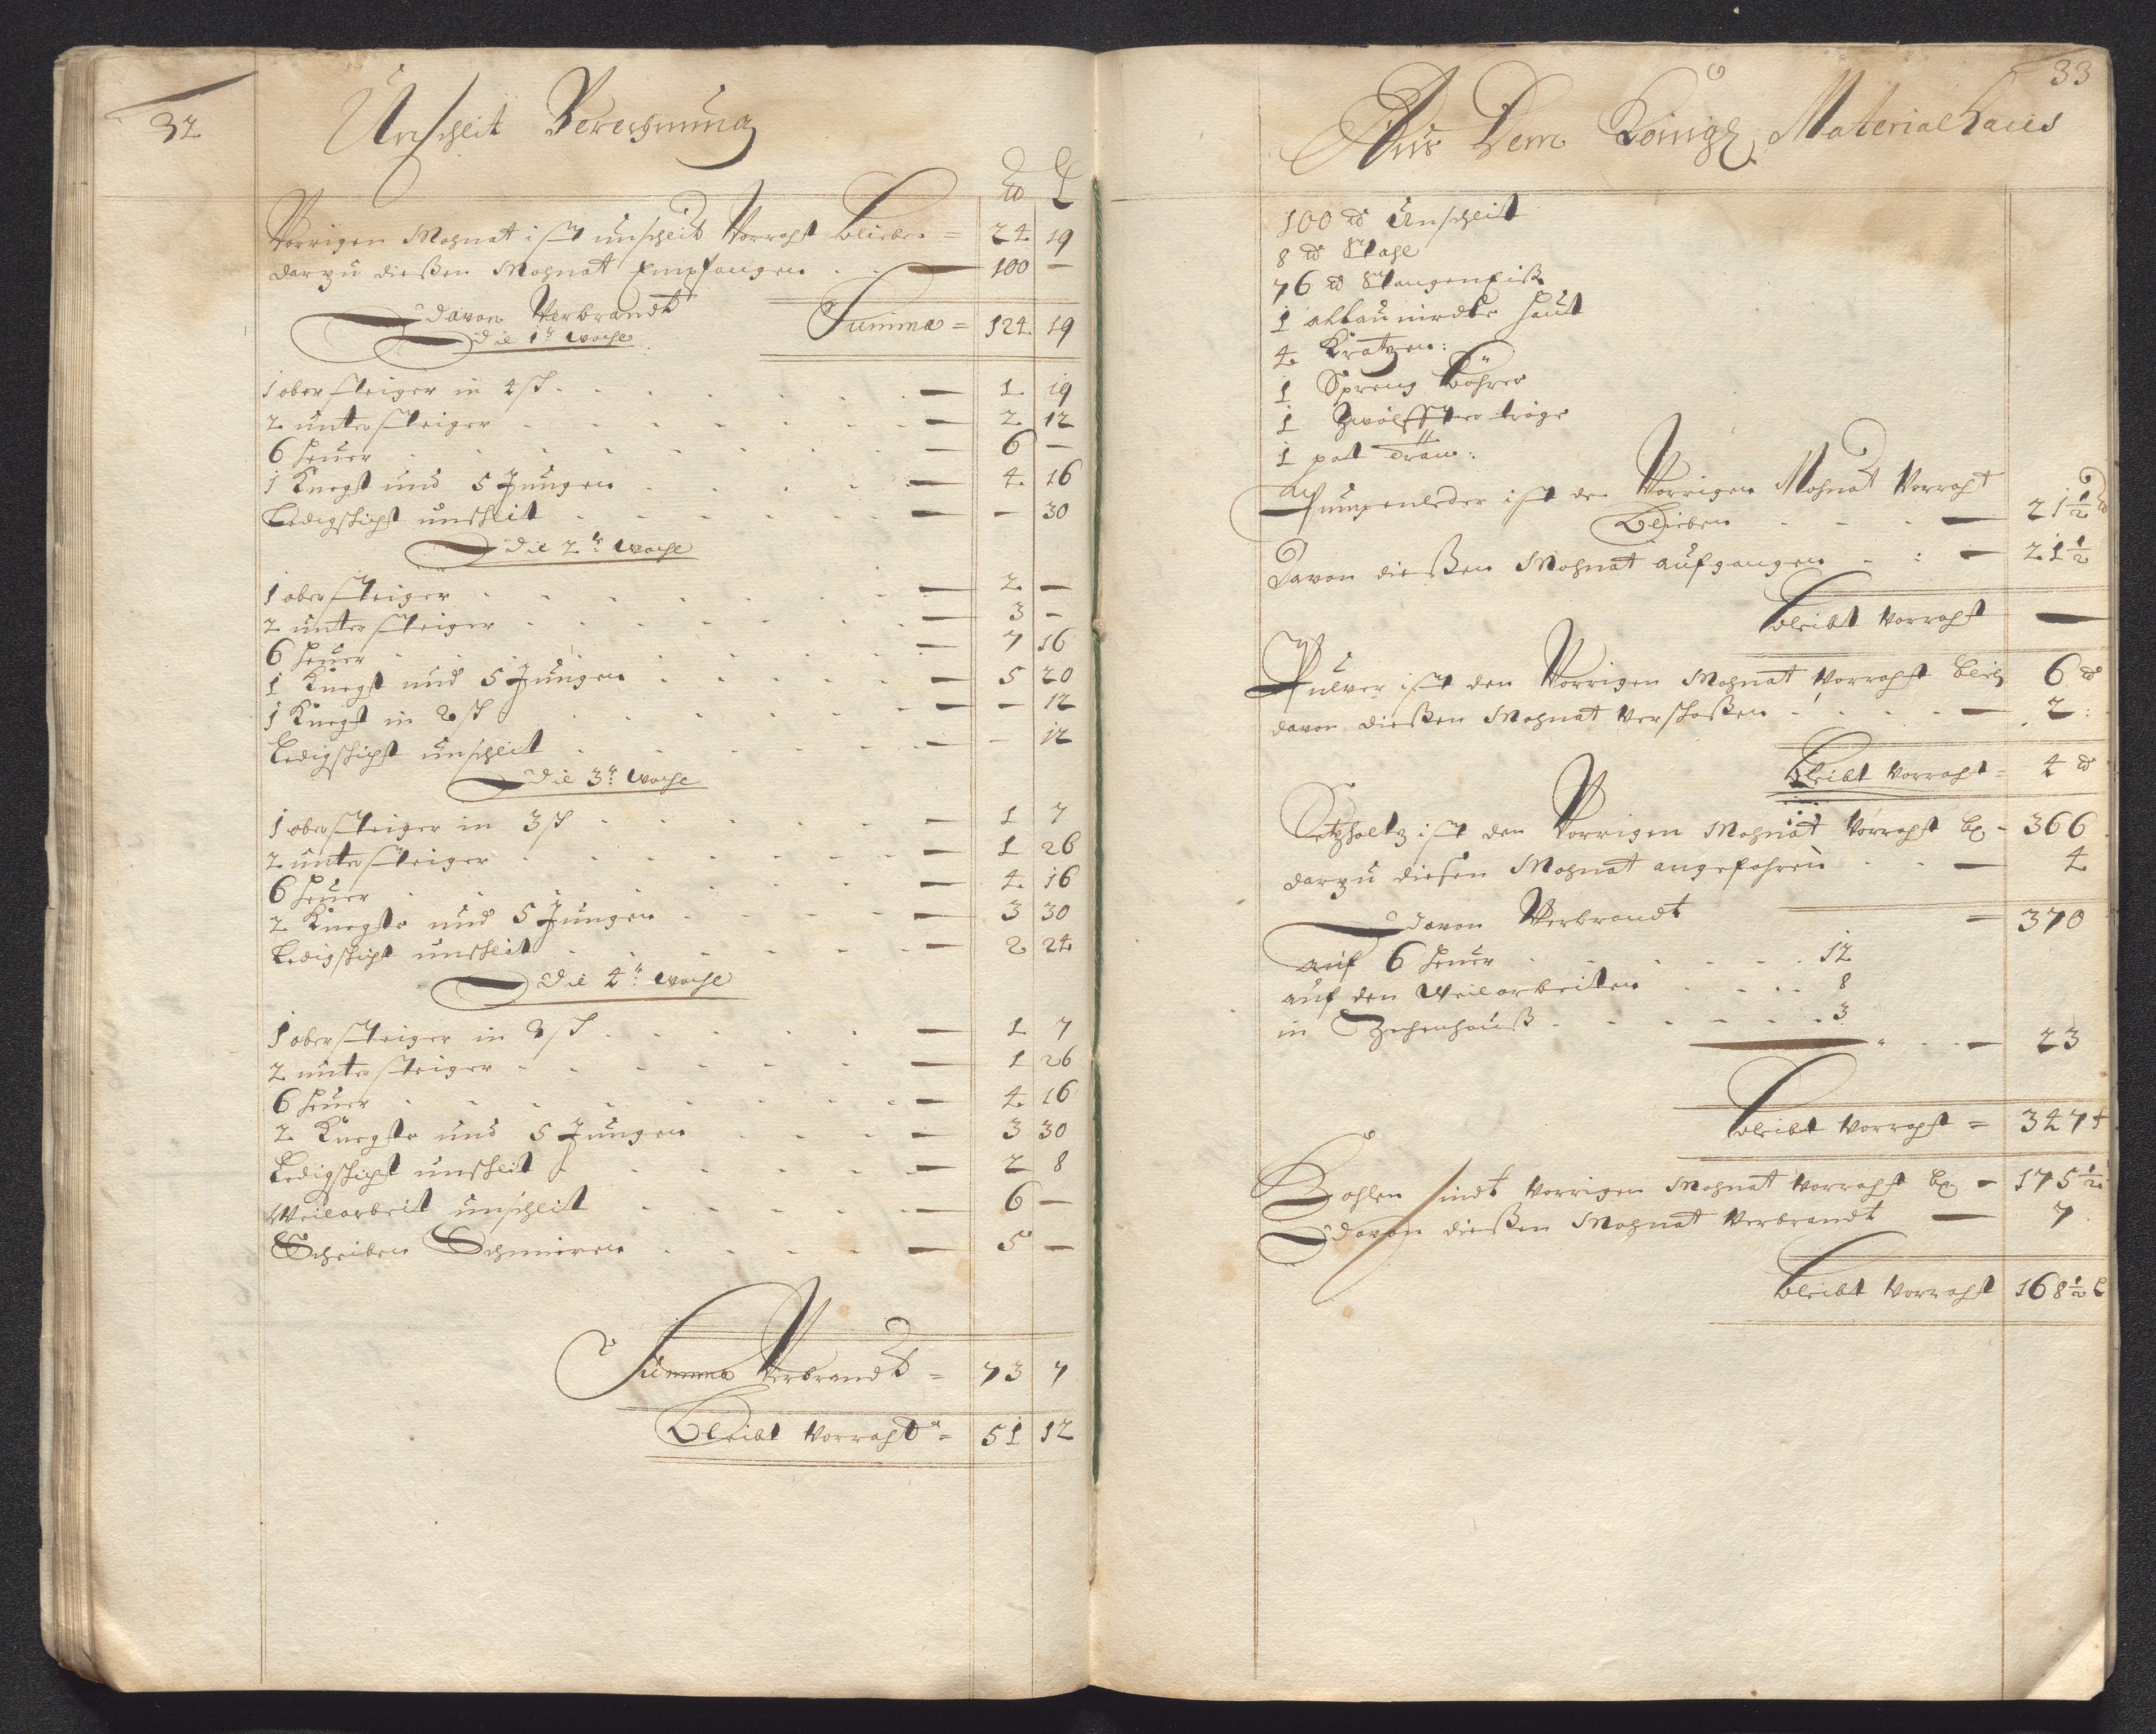 32
Unschleit Berechnung
℔ L
Vorrigen Mohnat ist unschleit Vorraht blieben = 24 19
darzu dießen Mohnat Empfangen — 100 —
Summa = 124 19
davon Verbrandt
die 1te woche
1 obersteiger in 4 sch — 1 19
2 untersteiger — 2 12
6 heuer — 6 —
1 Knecht und 5 Jungen — 4 16
Ledigschicht unschleit — — 30
die 2te woche
1 obersteiger — 2 —
2 untersteiger — 3 —
6 heuer — 7 16
1 Knecht und 5 Jungen — 5 20
1 Knecht in 2 sch — — 12
Ledigschicht unschleit — — 12
die 3te woche
1 obersteiger in 3 sch — 1 7
2 untersteiger — 1 26
6 heuer — 4 16
2 Knechte und 5 Jungen — 3 30
Ledigschicht unschleit — 2 24
die 4te woche
1 obersteiger in 3 sch — 1 7
2 untersteiger — 1 26
6 heuer — 4 16
2 Knechte und 5 Jungen — 3 30
Ledigschicht unschleit — 2 8
Weilarbeit unschleit — 6 —
Scheiben Schmieren — 5 —
Summa Verbrandt = 73 7
Bleibt Vorraht = 51 12
33
Aus Dem Königl Material Haus
100 ℔ Unschleit
8 ℔ Stahl
76 ℔ Stangen Eiß
1 allaunirdte haut
4 Kratzen:
1 Spreng Böhrer
1 Zwölffter tröge
1 paß Trän:
Pumpenleder ist den Vorrigen Mohnat Vorraht
Blieben — 21½ ℔
Davon dießen Mohnat aufgangen — 21½
bleibt Vorraht —
Pulver ist den Vorrigen Mohnat Vorraht blieb 6 ℔
davon dießen Mohnat Verschoßen — 2:
Bleibt Vorraht = 4 ℔
Setzholtz ist den Vorrigen Mohnat Vorraht bl = 366
darzu diesen Mohnat angefahren — 4
— 370
davon Verbrandt
auf 6 heuer 12
auf den Weilarbeiten 8
in Zechenhauß 3
— 23
bleibt Vorraht = 347
Kohlen sindt Vorrigen Mohnat Vorraht bl = 175½
davon dießen Mohnat Verbrandt — 7
bleibt Vorraht 168½